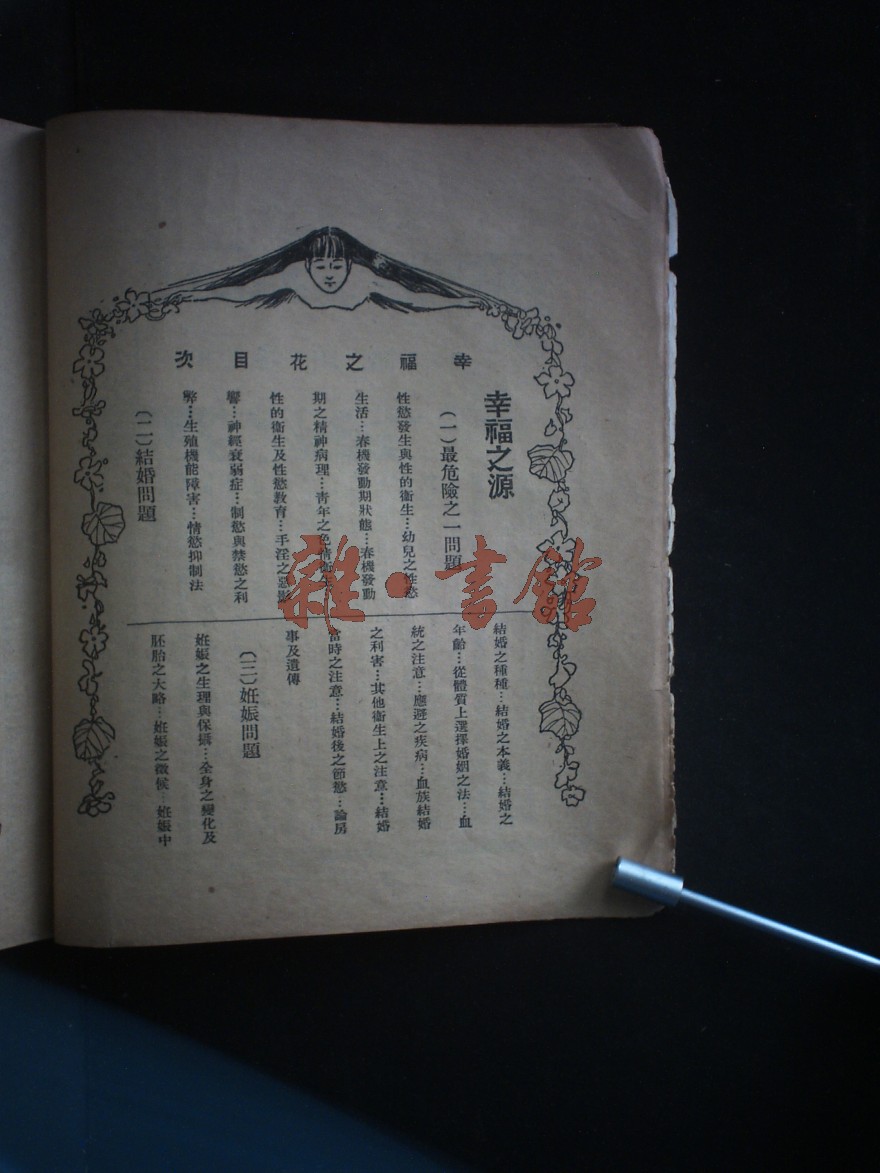 幸福之花目次
幸福之源
(一)最危險之一問題
性慾發生與性的衛生…幼兒之性慾
生活…春機發動期狀態…春機發動
期之精神病理…青年之色情衛生…
性的衛生及性慾教育…手淫之惡影
響…神經衰弱症…制慾與禁慾之利
弊…生殖機能障害…情慾抑制法
(二)結婚問題
結婚之種種…結婚之本義…結婚之
年齡…從體質上選擇婚姻之法…血
統之注意…應避之疾病…血族結婚
之利害…其他衛生上之注意…結婚
當時之注意…結婚後之節慾…論房
事及遺傳
(三)妊娠問題
妊娠之生理與保攝…全身之變化及
胚胎之大略…妊娠之徵候…妊娠中
雜·書館